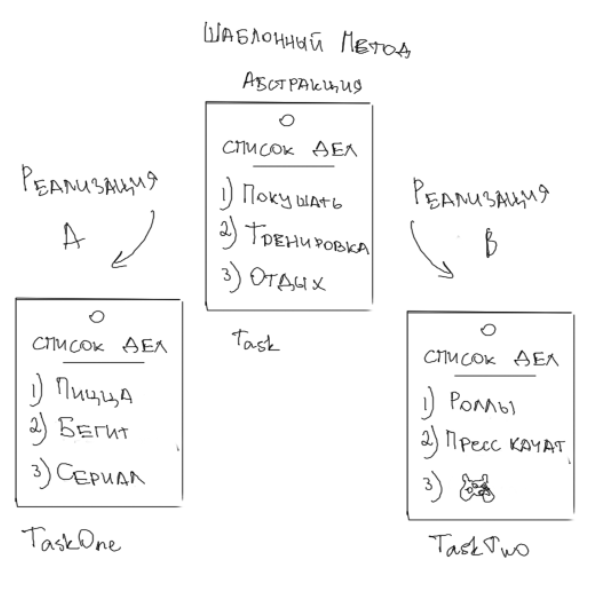 Шаблонный Метод
Абстракция
Список дел
1) Покушать
2) Тренировка
3) Отдых
Task
Реализация
А
Список дел
1) Пицца
2) Бегит
3) Сериал
TaskOne
Реализация
B
Список дел
1) Роллы
2) Пресс качат
3)
TaskTwo